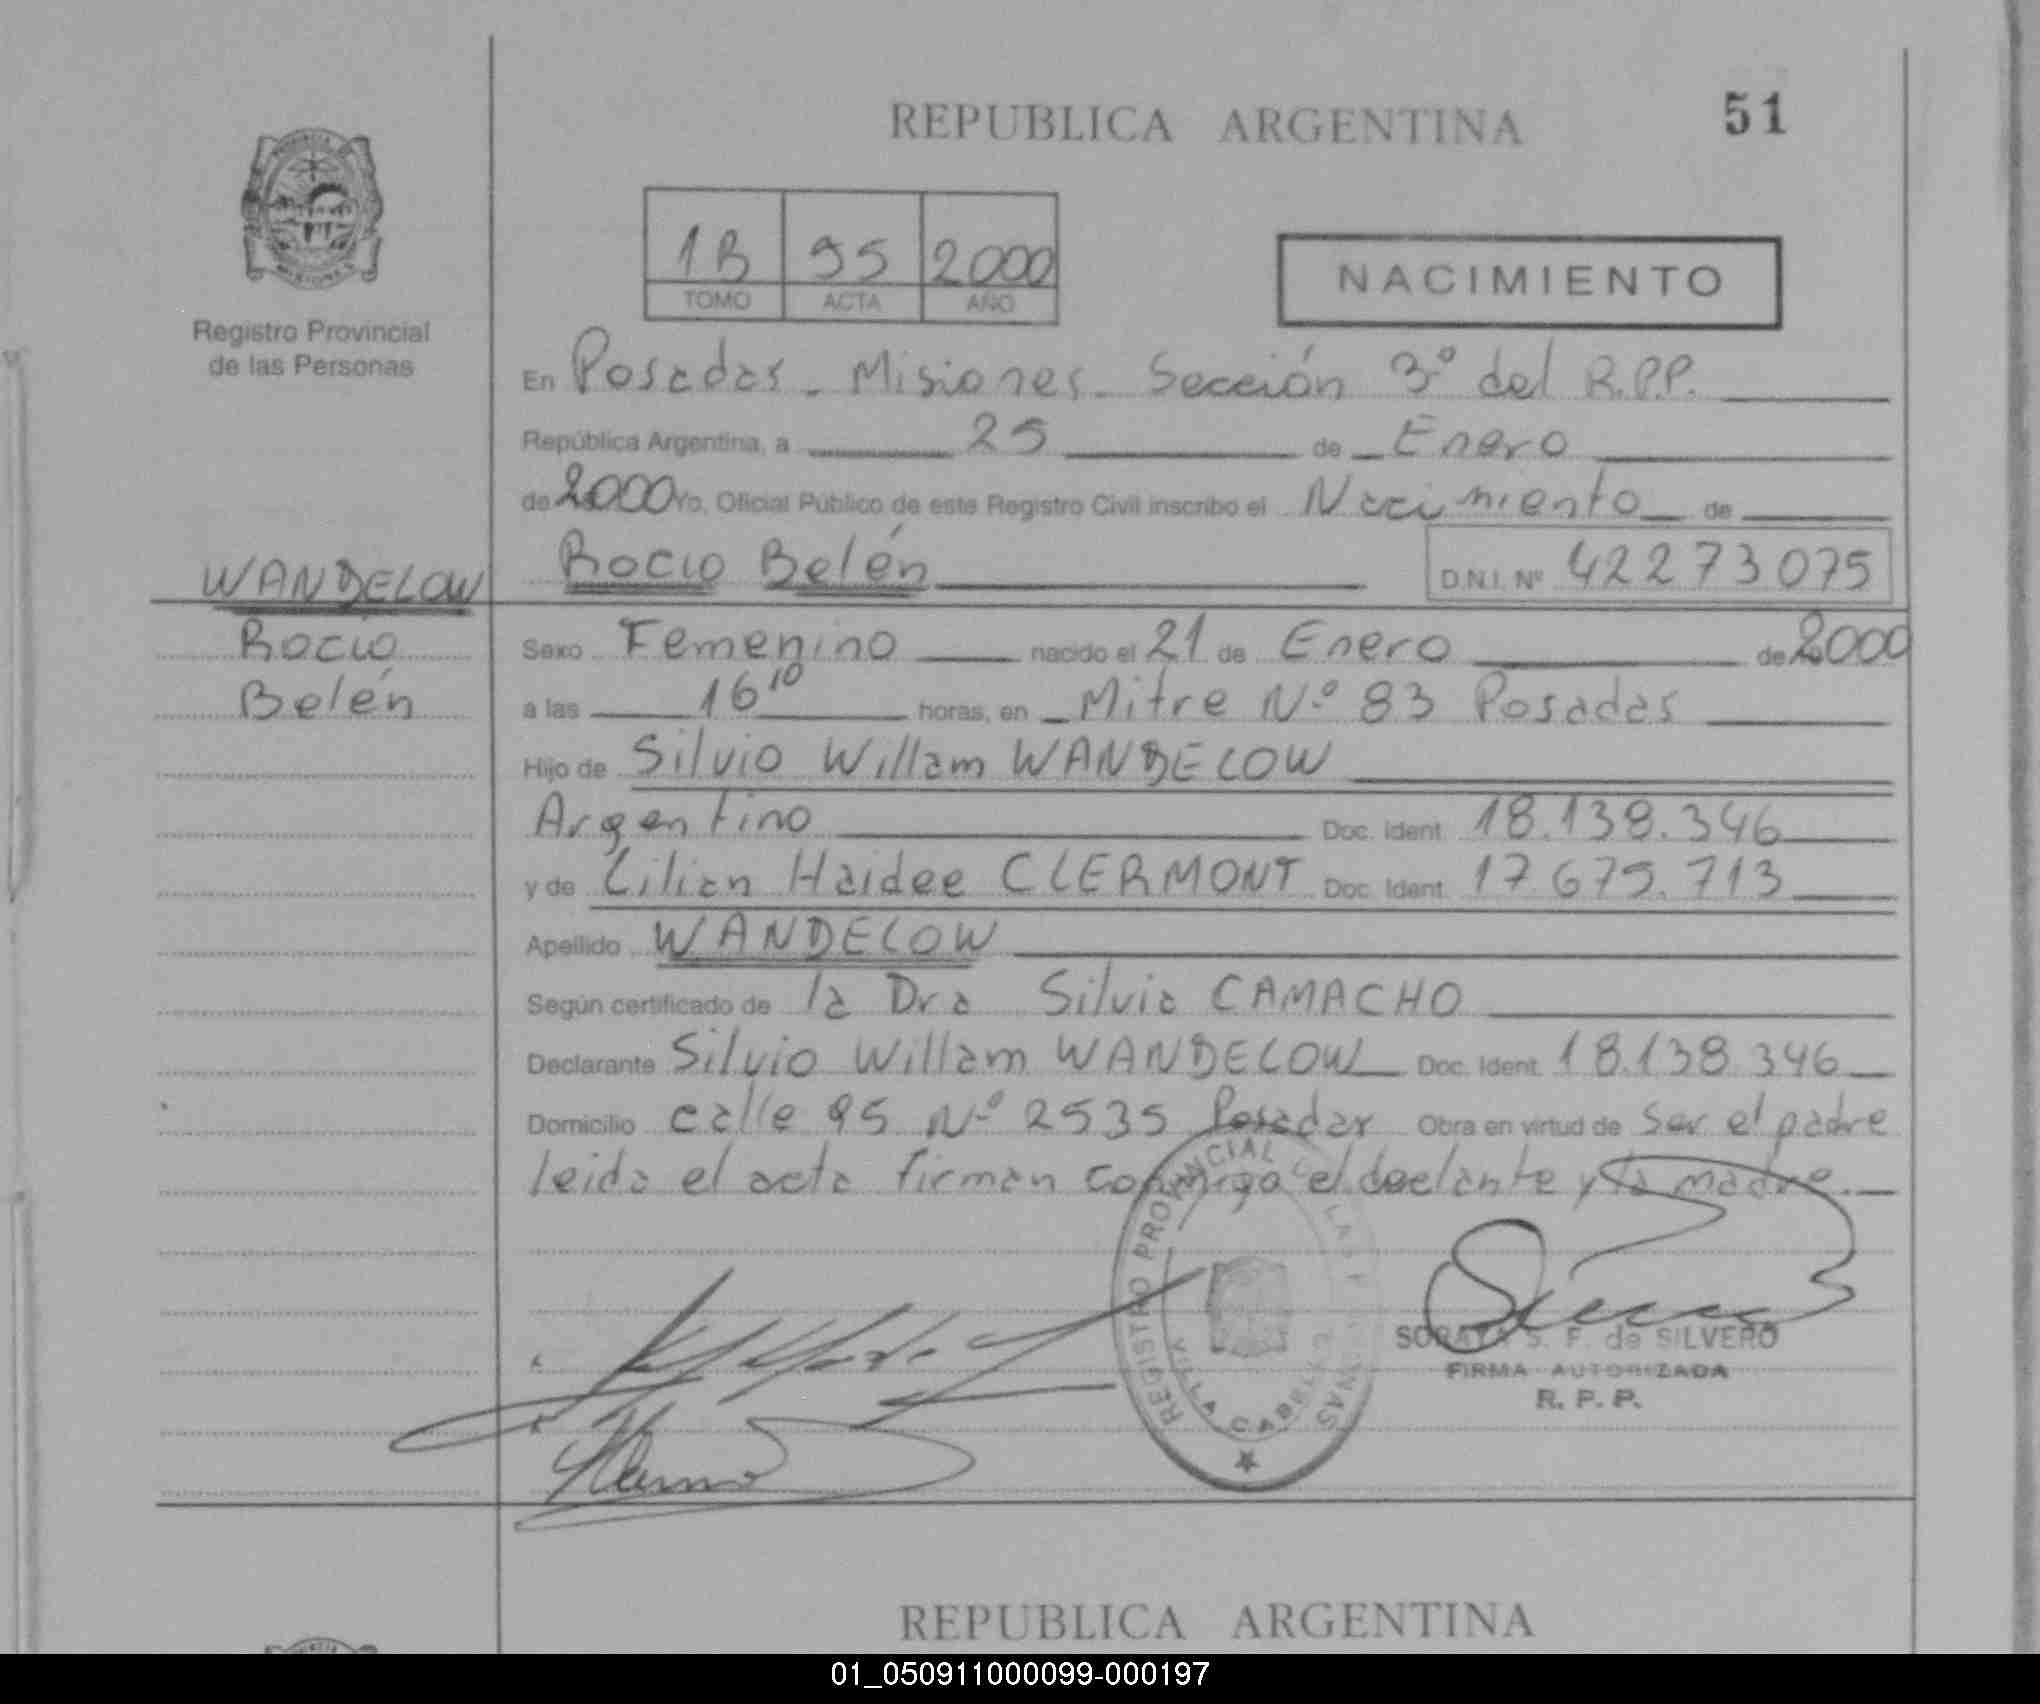 REPUBLICA ARGENTINA
51
1B 95 2000
TOMO ACTA AÑO
NACIMIENTO
Registro Provincial
de las Personas
En Posadas - Misiones - Sección 3º del R.P.P.
República Argentina, a 25 de Enero
de 2000 Yo, Oficial Público de este Registro Civil inscribo el Nacimiento de
Rocio Belén D.N.I. Nº 42273075
WANDELOW
Rocio
Belén
Sexo Femenino nacido el 21 de Enero de 2000
a las 16 10 horas, en Mitre Nº 83 Posadas
Hijo de Silvio Willam WANDELOW
Argentino Doc. Ident. 18.138.346
y de Lilian Haidee CLERMONT Doc. Ident. 17.675.713
Apellido WANDELOW
Según certificado de la Dra Silvia CAMACHO
Declarante Silvio Willam WANDELOW Doc. Ident. 18.138.346
Domicilio calle 95 Nº 2535 Posadas Obra en virtud de ser el padre
leida el acta firman conmigo el declante y la madre.
REGISTRO PROVINCIAL DE LAS PERSONAS
VILLA CABELLO
SORAYA S. F. de SILVERO
FIRMA AUTORIZADA
R. P. P.
REPUBLICA ARGENTINA
01_050911000099-000197